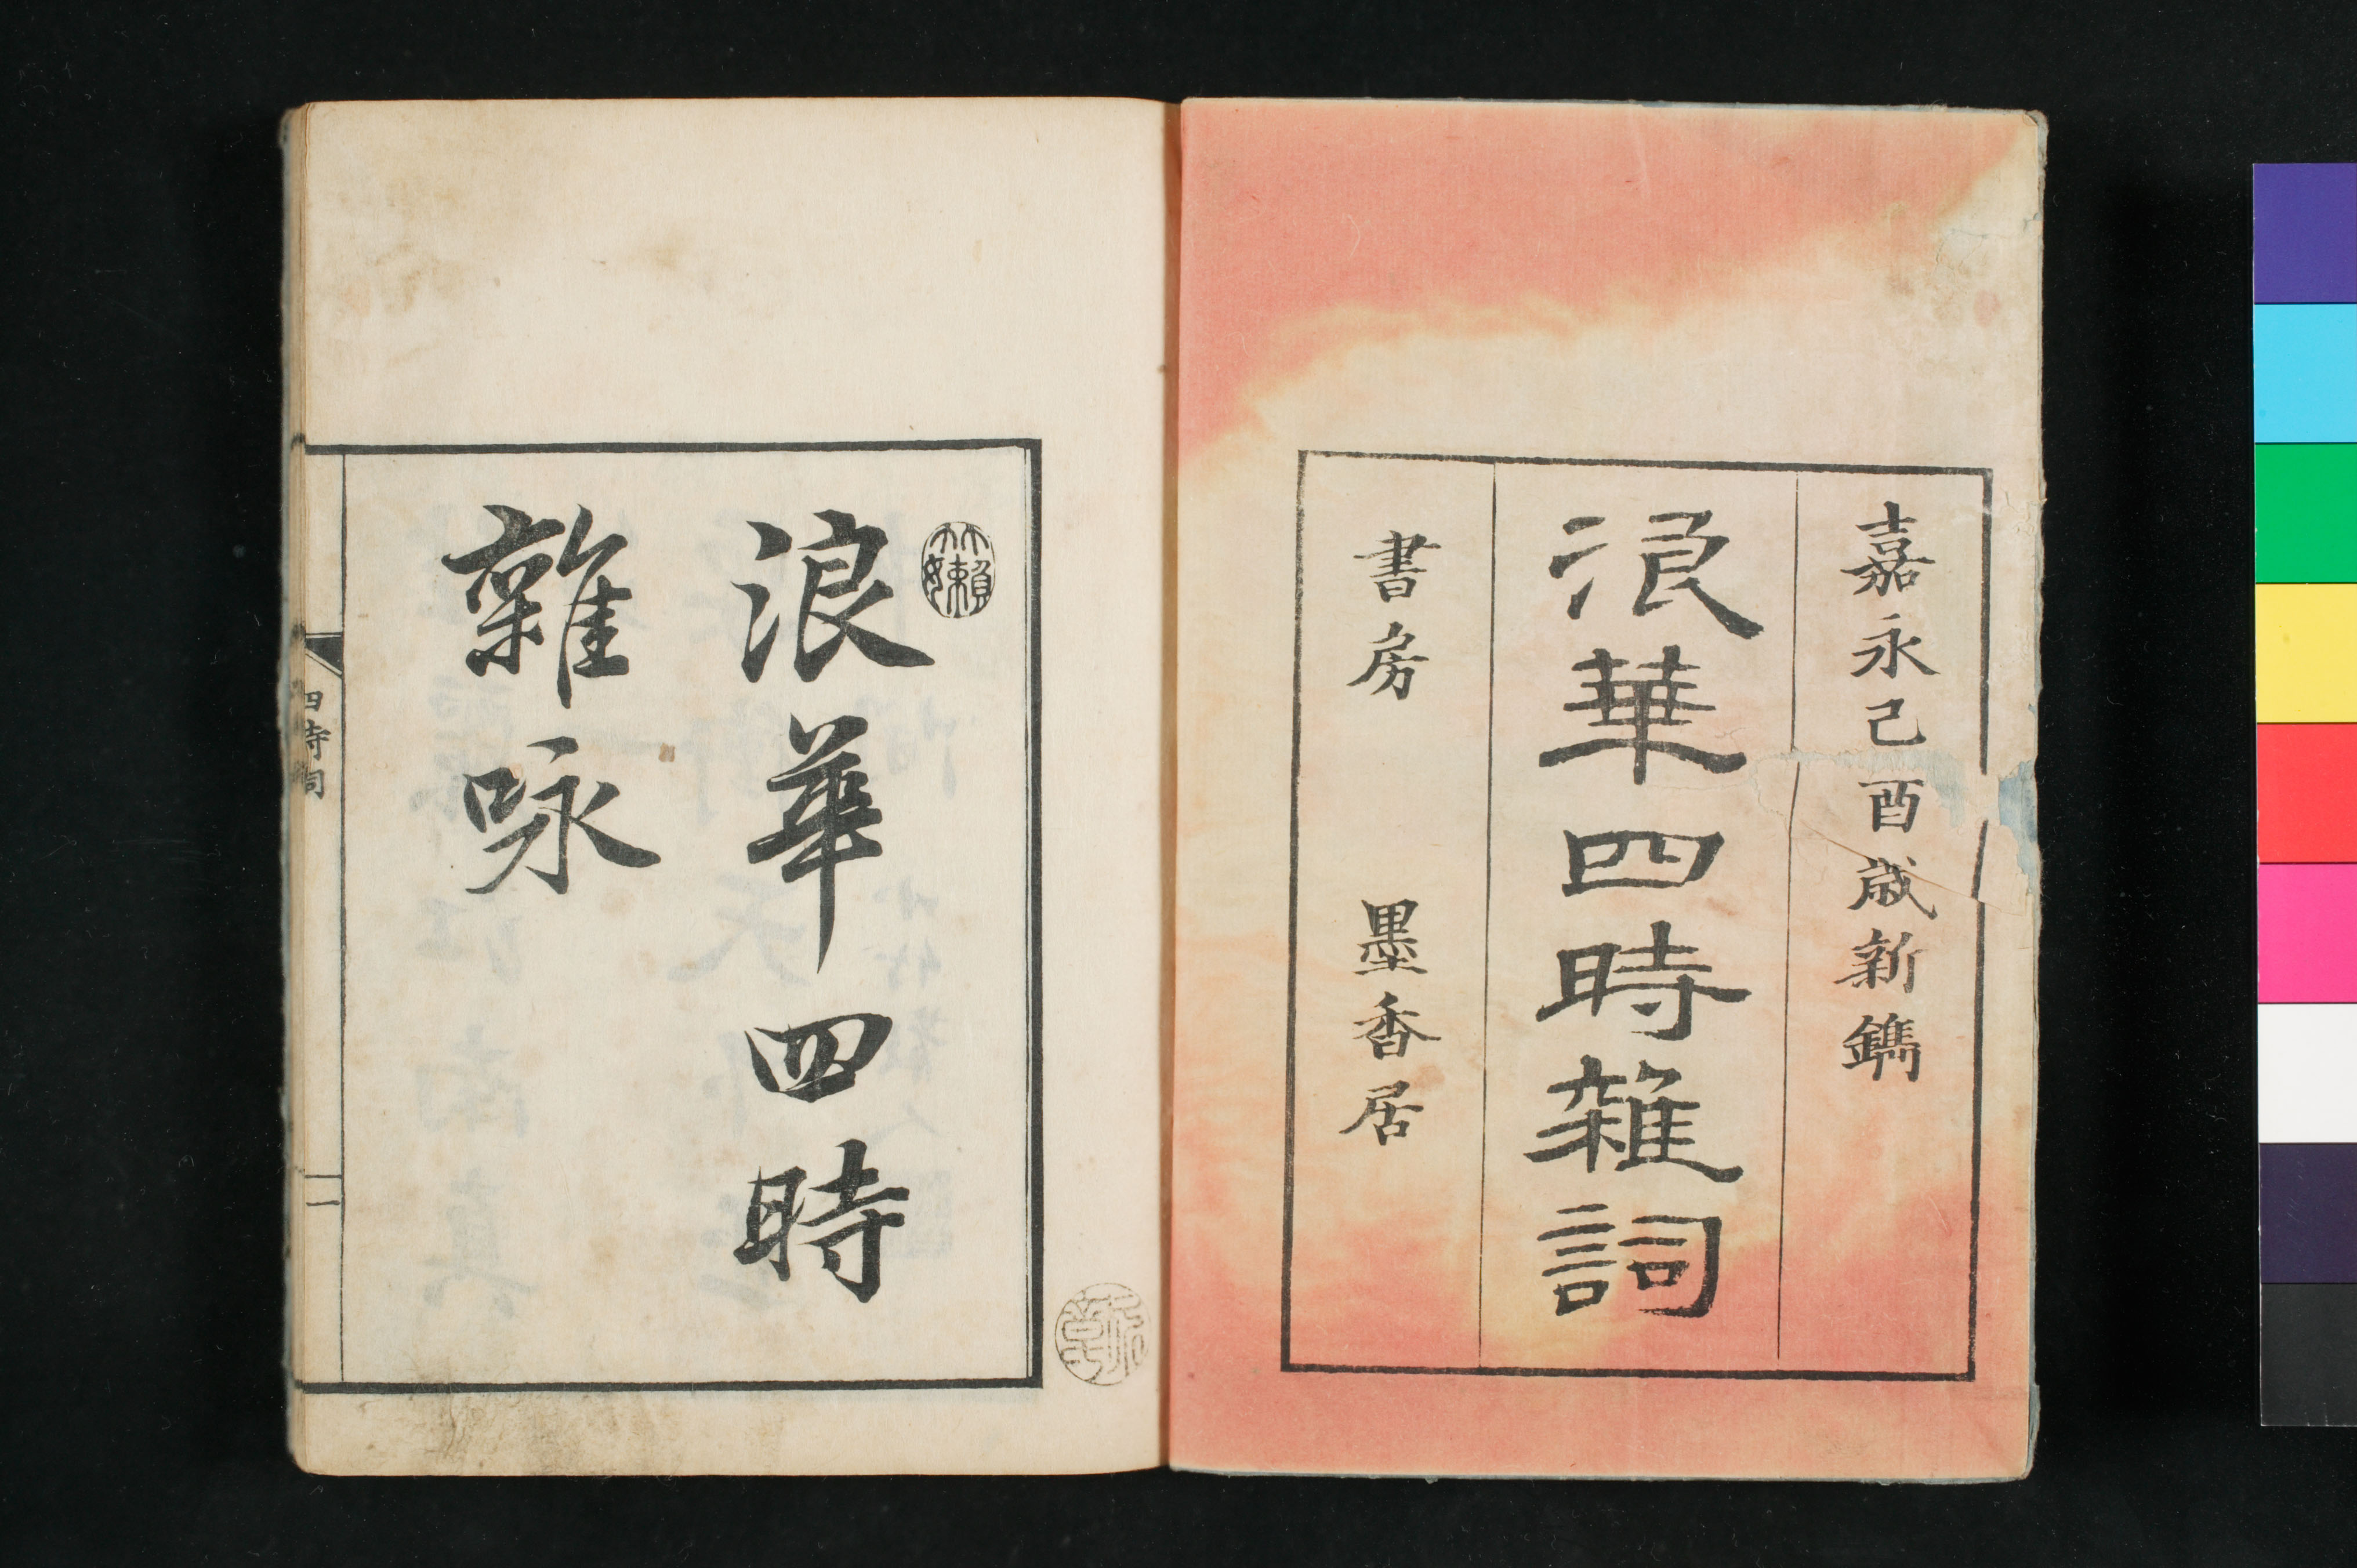 嘉永己酉歳新鐫
浪華四時雜詞
書房　墨香居
浪華四時
雜咏
四時詞
一